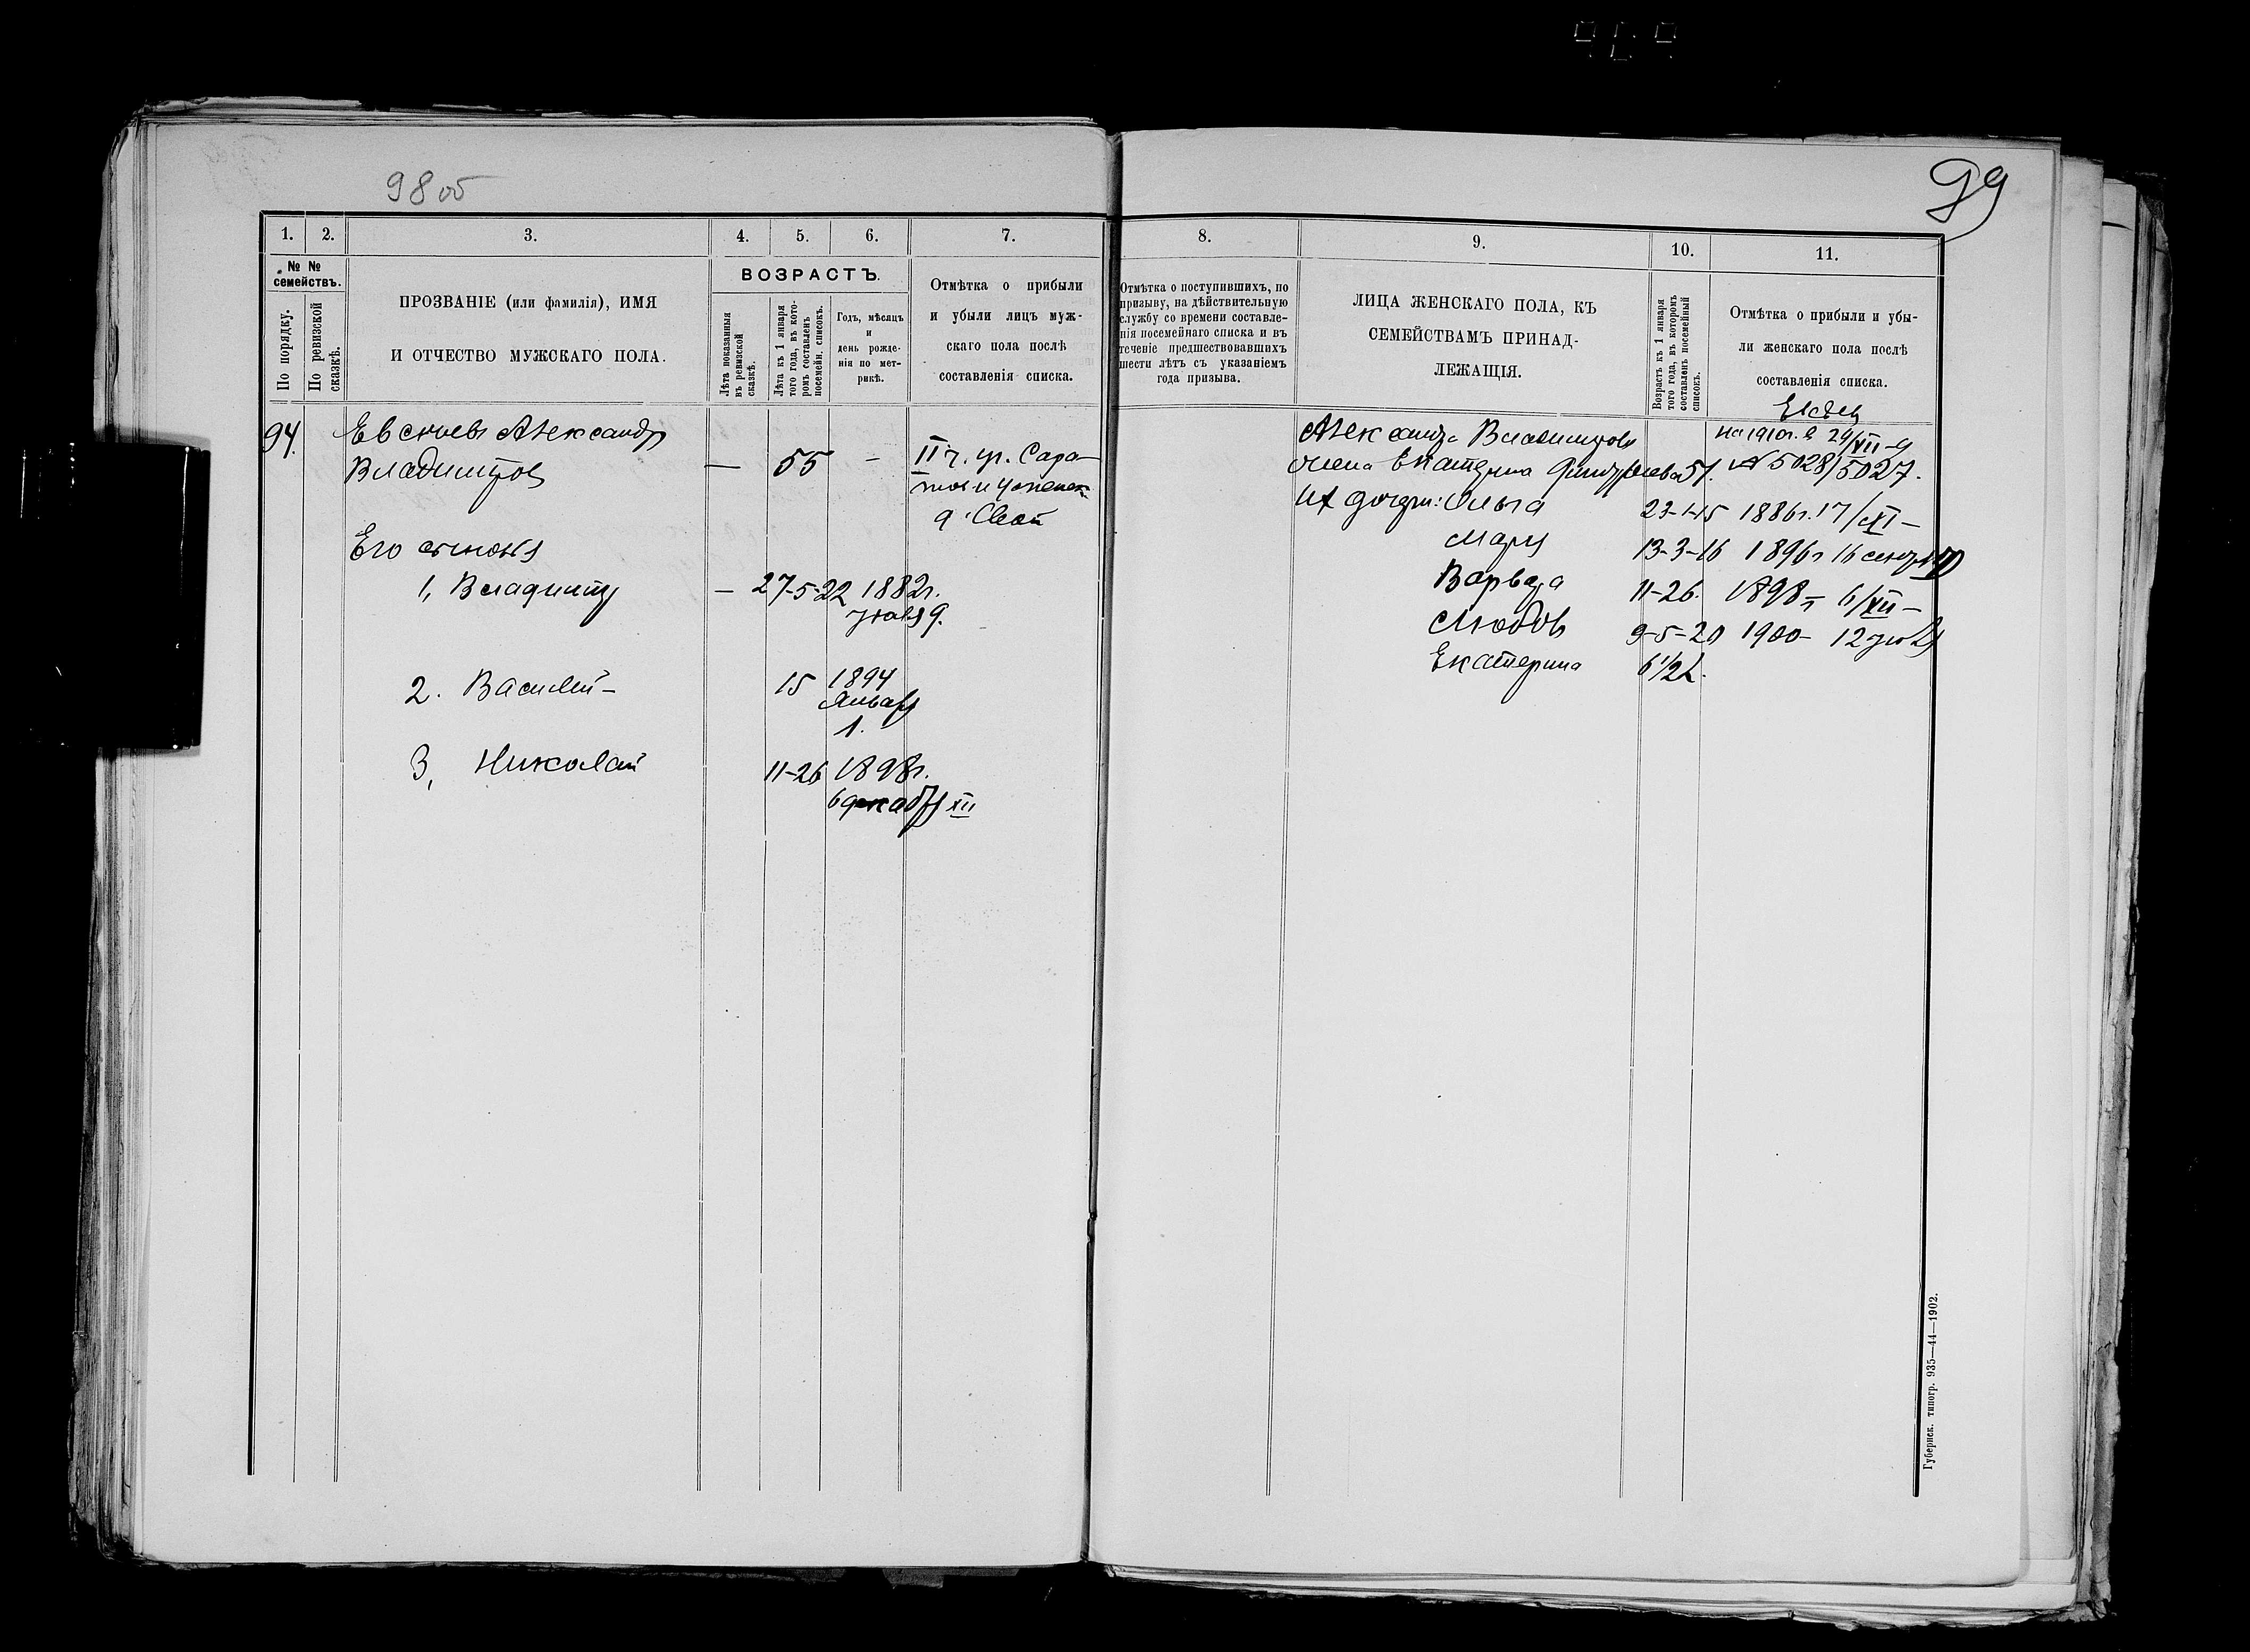 98 об
99
1. 2. 3. 4. 5. 6. 7.
№ № семействъ.
По порядку.
По ревизской сказкѣ.
ПРОЗВАНІЕ (или фамилія), ИМЯ
И ОТЧЕСТВО МУЖСКАГО ПОЛА.
ВОЗРАСТЪ.
Лѣта показанныя
въ ревизской
сказкѣ.
Лѣта къ 1 января
того года, въ кото-
ромъ составленъ
посемейн. списокъ.
Годъ, мѣсяцъ
и
день рожде-
нія по мет-
рикѣ.
Отмѣтка о прибыли
и убыли лицъ муж-
скаго пола послѣ
составленія списка.
94. Александр
Владимиров — 55 – II ч. Сара-
Его сыновья
1, Владимир — 27-5-22 1882г.
9.
2. Василий – 15 1894
Января
1.
3, Николай 11-26 1898г.
6 декабря XII
8. 9. 10. 11.
Отмѣтка о поступившихъ, по
призыву, на дѣйствительную
службу со времени составле-
нія посемейнаго списка и въ
теченіе предшествовавшихъ
шести лѣтъ съ указаніемъ
года призыва.
ЛИЦА ЖЕНСКАГО ПОЛА, КЪ
СЕМЕЙСТВАМЪ ПРИНАД-
ЛЕЖАЩІЯ.
Возрастъ къ 1 января
того года, въ которомъ
составленъ посемейный
списокъ.
Отмѣтка о прибыли и убы-
ли женскаго пола послѣ
составленія списка.
Александра Владимирова на 1910г. 29/XII-9
жена Екатерина 51. № 5028/5027.
Их дочери: Ольга 23-1-15 1886г. 17/XI–
Мария 13-3-16 1896г 16
Варвара 11-26. 1898г 6/XII–
Любовь 9-5-20 1900– 12
Екатерина 6 1/2 л.
Губернск. типогр. 935—44—1902.